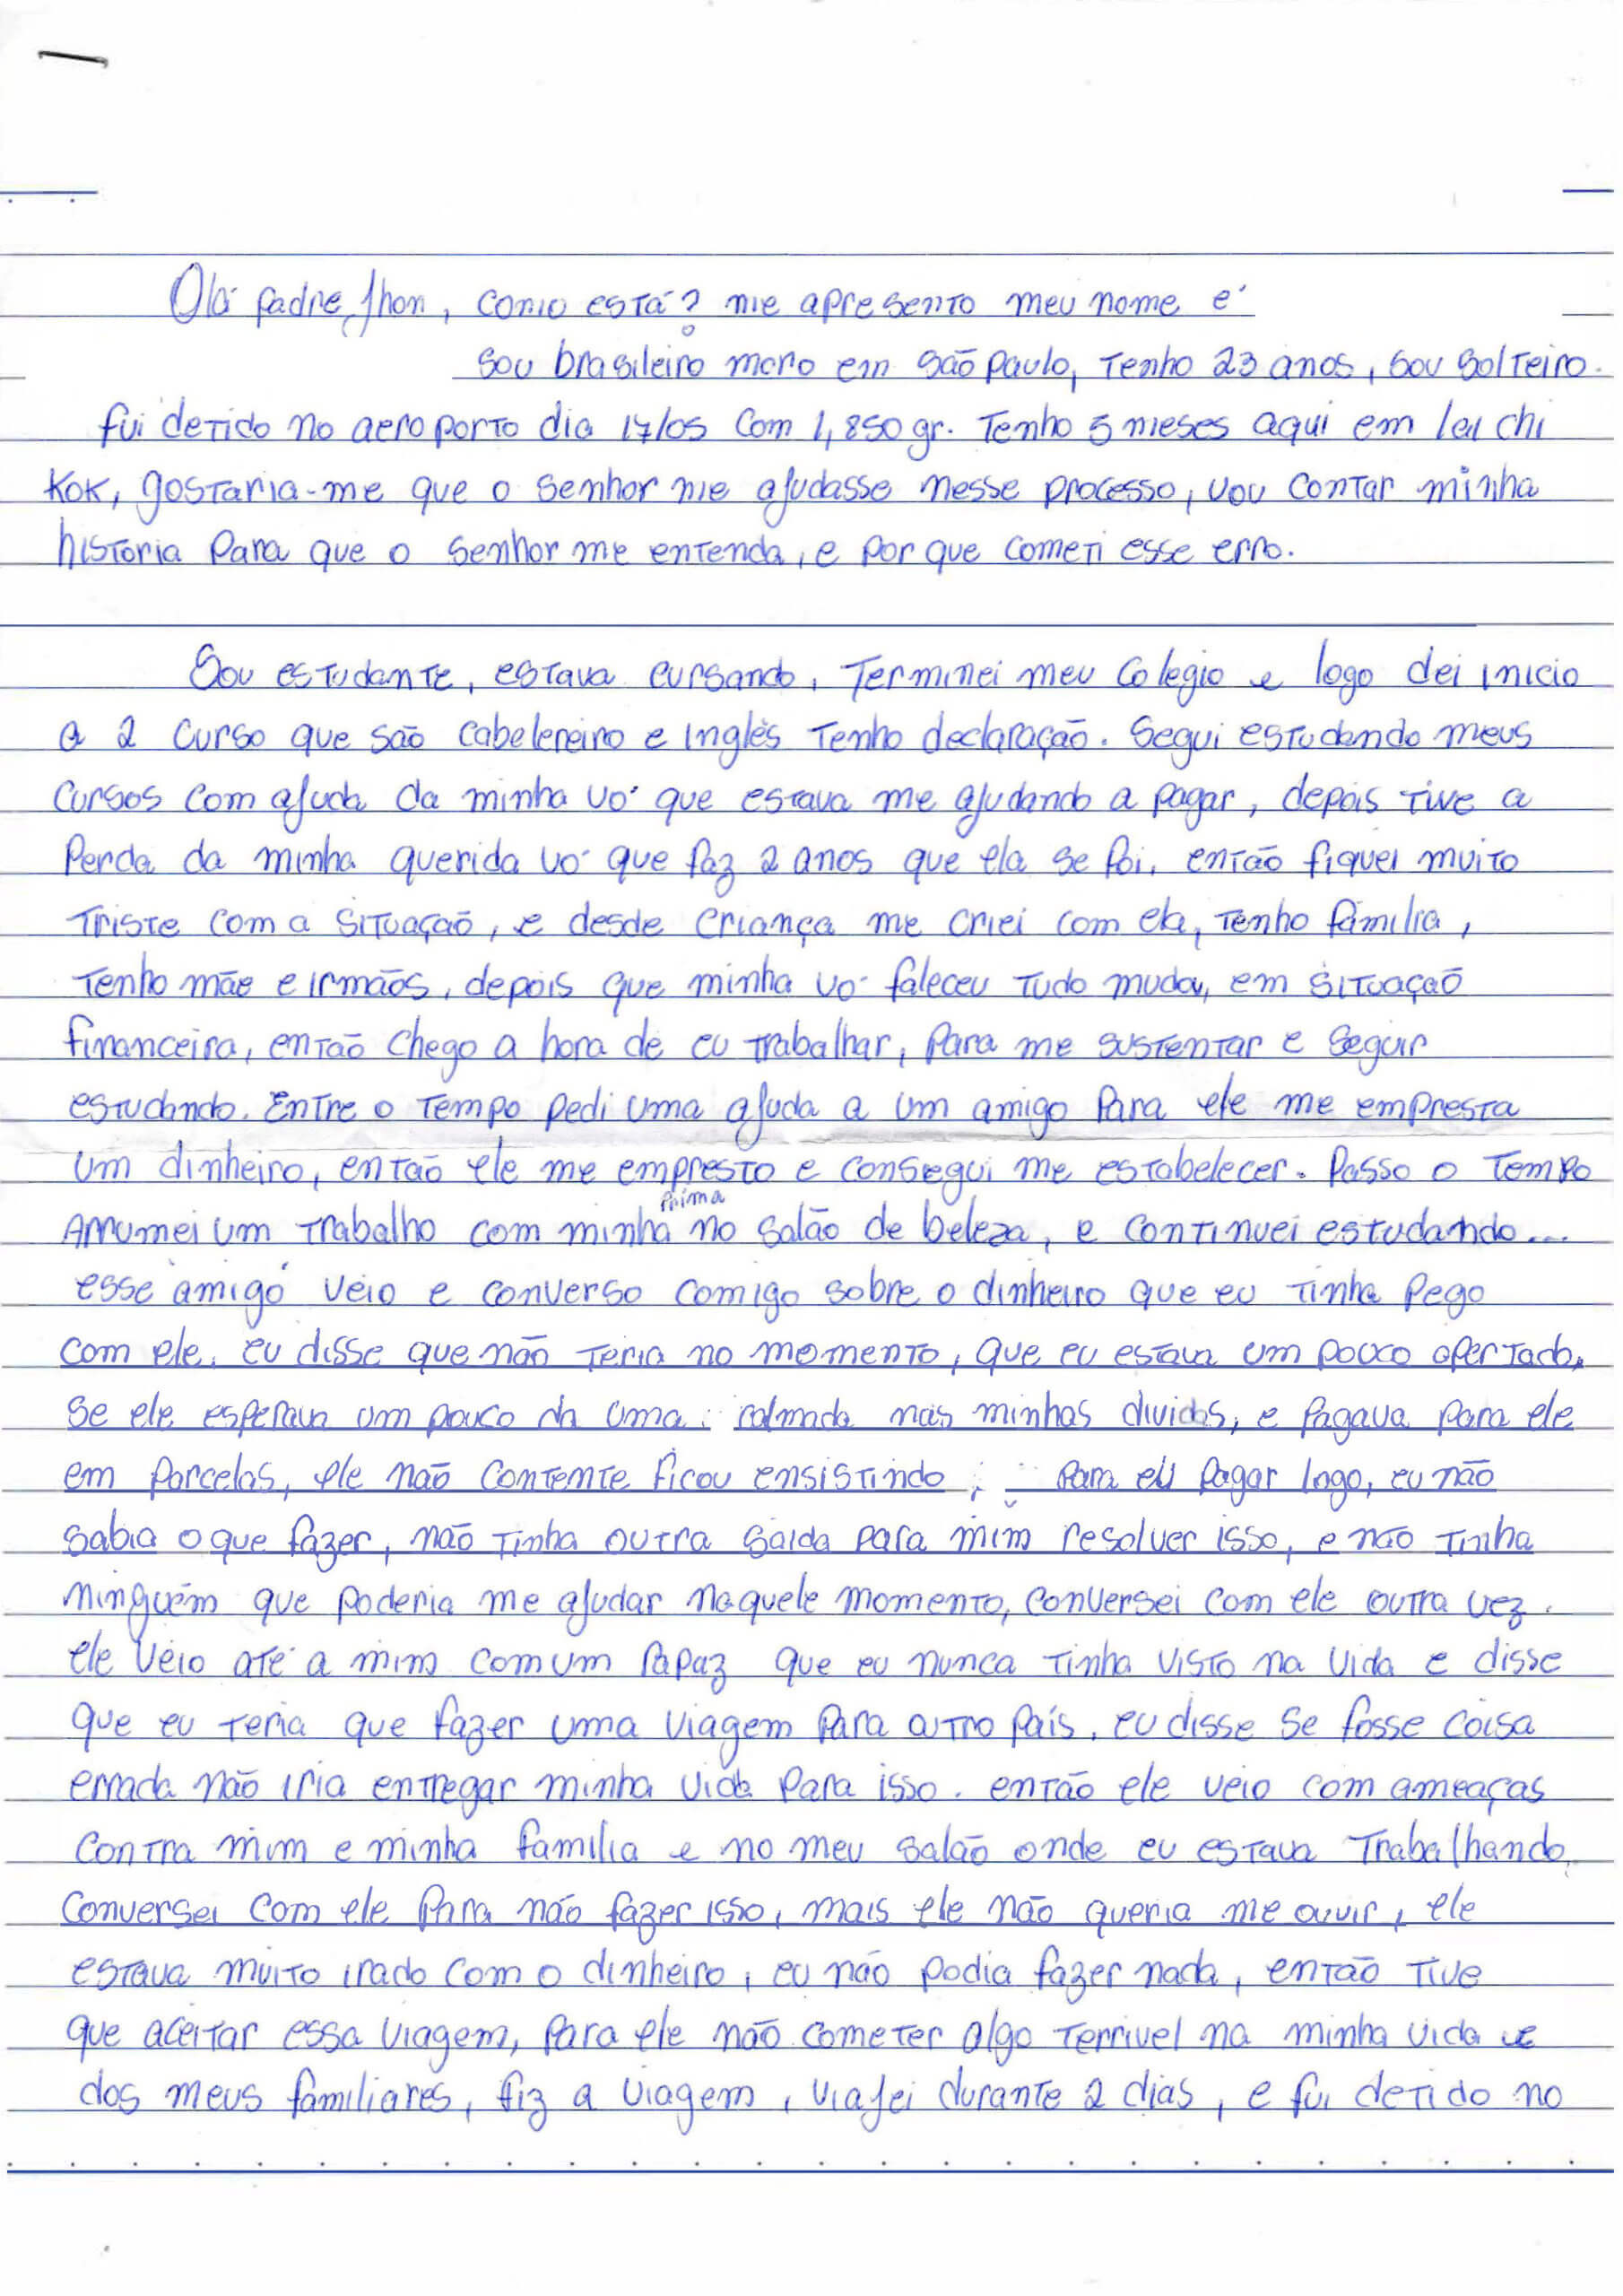 Olá padre Jhon, como está? me apresento meu nome e'
sou brasileiro moro em são paulo, tenho 23 anos, sou solteiro.
fui detido no aeroporto dia 17/05 com 1,850 gr. Tenho 5 meses aqui em lai chi
Kok, gostaria-me que o senhor me ajudasse nesse processo, vou contar minha
historia para que o senhor me entenda, e por que cometi esse erro.
Sou estudante, estava cursando, Terminei meu Colegio e logo dei inicio
a 2 curso que são cabelereiro e Inglês tenho declaração. Segui estudando meus
cursos com ajuda da minha vo' que estava me ajudando a pagar, depois tive a
perda da minha querida vo' que faz 2 anos que ela se foi, então fiquei muito
triste com a situação, e desde criança me criei com ela, tenho familia,
tenho mãe e irmãos, depois que minha vo' faleceu tudo mudou, em situação
financeira, então chego a hora de eu trabalhar, para me sustentar e seguir
estudando. Entre o tempo pedi uma ajuda a um amigo para ele me empresta
um dinheiro, então ele me empresto e consegui me estabelecer. Passo o tempo
Arrumei um trabalho com minha prima no salão de beleza, e continuei estudando...
esse amigo veio e converso comigo sobre o dinheiro que eu tinha pego
com ele, eu disse que não teria no momento, que eu estava um pouco apertado,
se ele esperava um pouco da uma calmada nas minhas dividas, e pagava para ele
em parcelas, ele não contente ficou ensistindo para eu pagar logo, eu não
sabia o que fazer, não tinha outra saida para mim resolver isso, e não tinha
ninguém que poderia me ajudar naquele momento, conversei com ele outra vez.
ele veio até a mim com um rapaz que eu nunca tinha visto na vida e disse
que eu teria que fazer uma viagem para outro país, eu disse se fosse coisa
errada não iria entregar minha vida para isso. então ele veio com ameaças
contra mim e minha familia e no meu salão onde eu estava trabalhando,
conversei com ele para não fazer isso, mais ele não queria me ouvir, ele
estava muito irado com o dinheiro, eu não podia fazer nada, então tive
que aceitar essa viagem, para ele não cometer algo terrivel na minha vida e
dos meus familiares, fiz a viagem, viajei durante 2 dias, e fui detido no